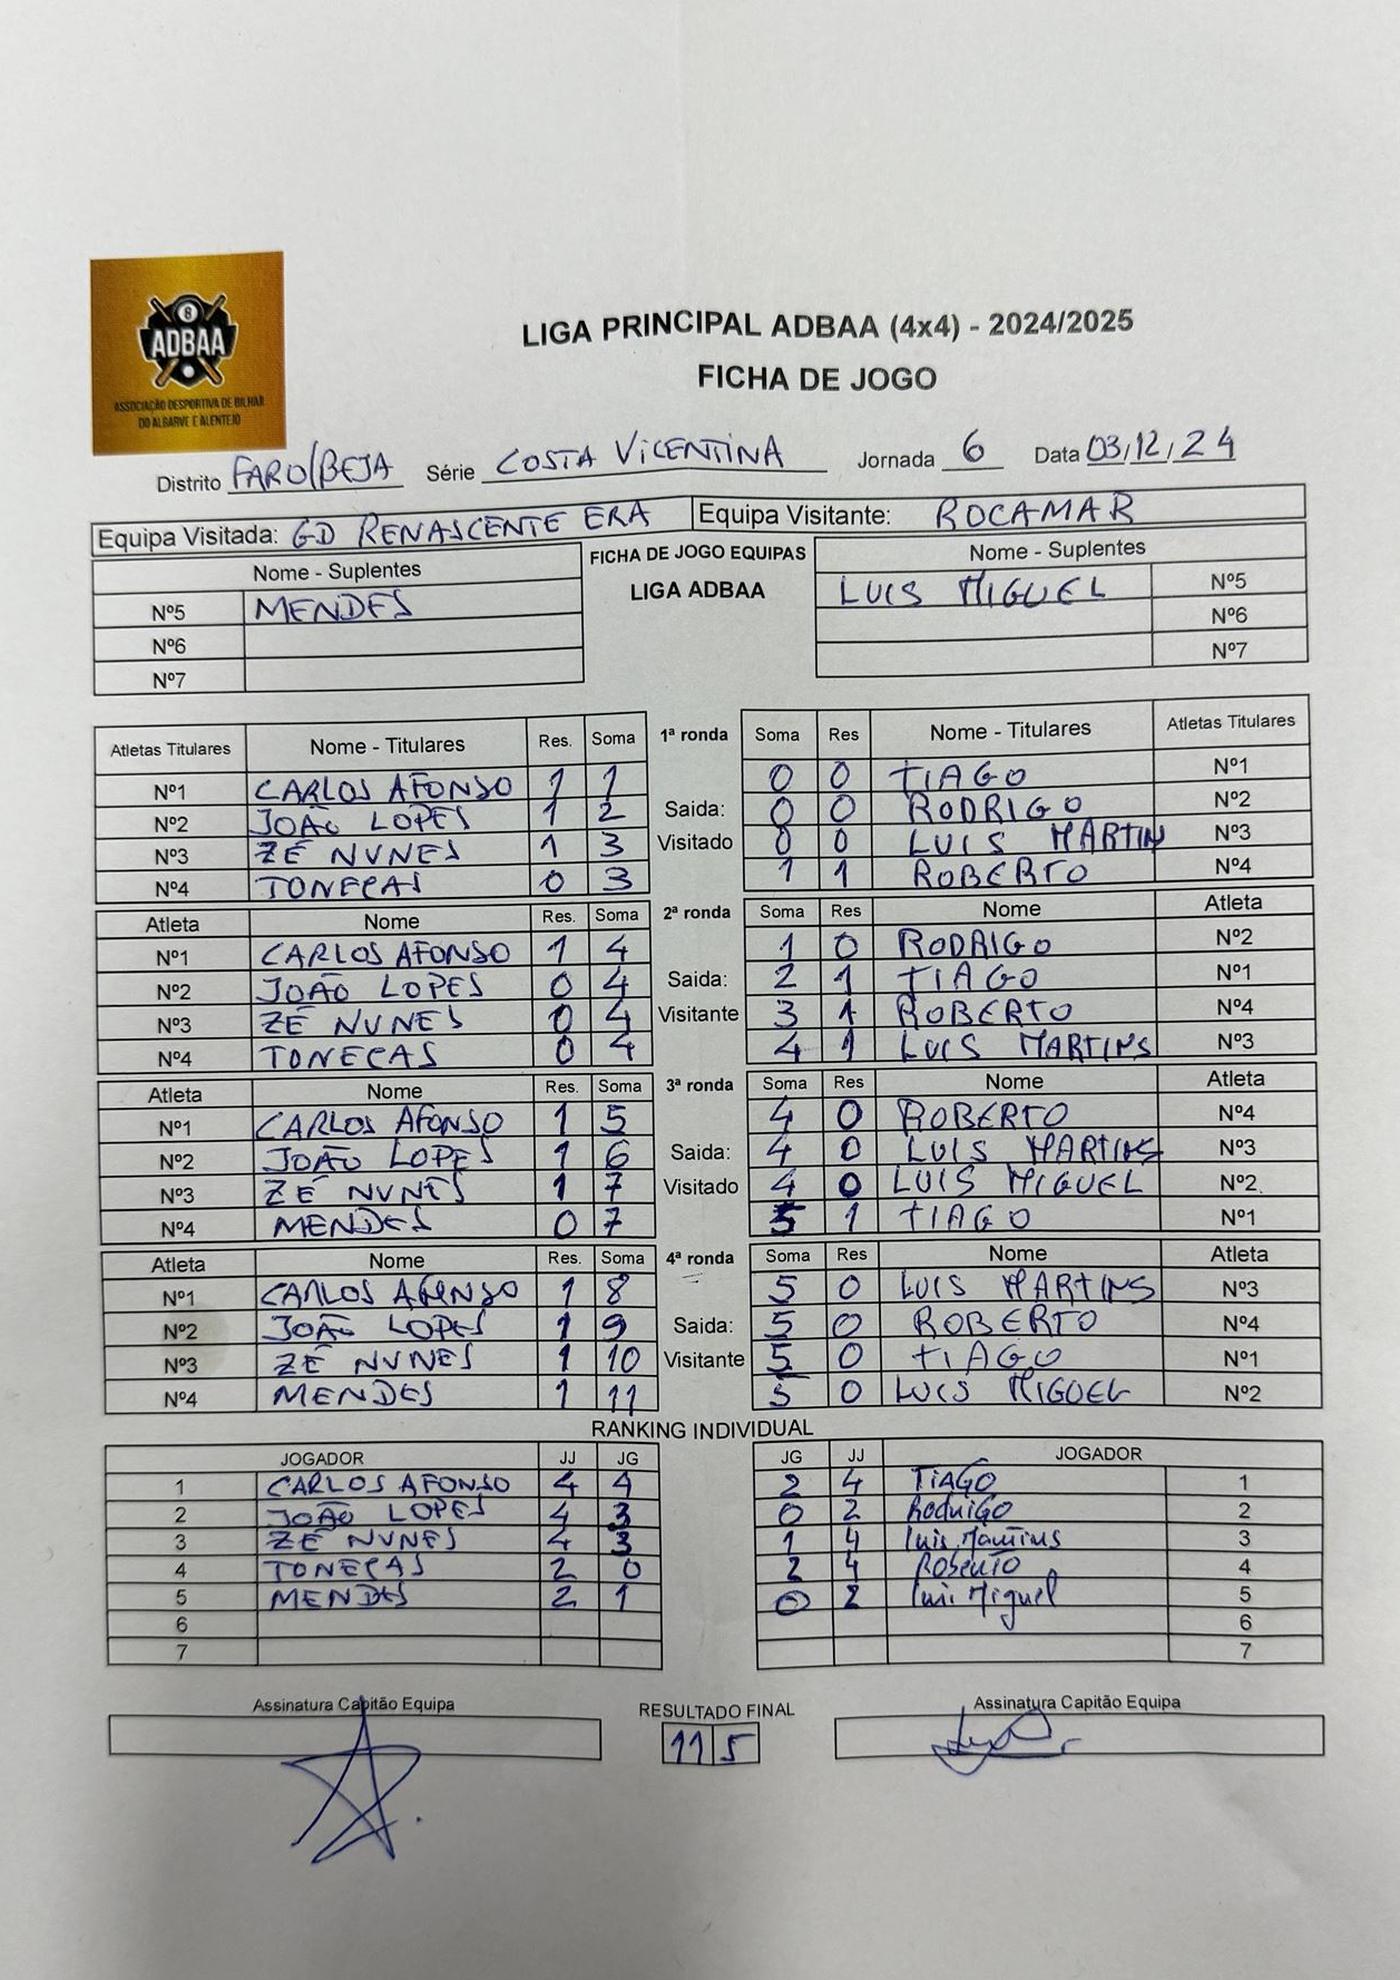 8
ADBAA
ASSOCIAÇÃO DESPORTIVA DE BILHAR
DO ALGARVE E ALENTEJO
LIGA PRINCIPAL ADBAA (4x4) - 2024/2025
FICHA DE JOGO
Distrito FARO/BEJA Série COSTA VICENTINA Jornada 6 Data 03/12/24
Equipa Visitada: GD RENASCENTE ERA Equipa Visitante: ROCAMAR
Nome - Suplentes FICHA DE JOGO EQUIPAS Nome - Suplentes
Nº5 MENDES LIGA ADBAA LUIS MIGUEL Nº5
Nº6 Nº6
Nº7 Nº7
Atletas Titulares Nome - Titulares Res. Soma 1ª ronda Soma Res Nome - Titulares Atletas Titulares
Nº1 CARLOS AFONSO 1 1 0 0 TIAGO Nº1
Nº2 JOÃO LOPES 1 2 Saida: 0 0 RODRIGO Nº2
Nº3 ZÉ NUNES 1 3 Visitado 0 0 LUIS MARTIN Nº3
Nº4 TONECAS 0 3 1 1 ROBERTO Nº4
Atleta Nome Res. Soma 2ª ronda Soma Res Nome Atleta
Nº1 CARLOS AFONSO 1 4 1 0 RODRIGO Nº2
Nº2 JOÃO LOPES 0 4 Saida: 2 1 TIAGO Nº1
Nº3 ZÉ NUNES 0 4 Visitante 3 1 ROBERTO Nº4
Nº4 TONECAS 0 4 4 1 LUIS MARTINS Nº3
Atleta Nome Res. Soma 3ª ronda Soma Res Nome Atleta
Nº1 CARLOS AFONSO 1 5 4 0 ROBERTO Nº4
Nº2 JOÃO LOPES 1 6 Saida: 4 0 LUIS MARTINS Nº3
Nº3 ZÉ NUNES 1 7 Visitado 4 0 LUIS MIGUEL Nº2
Nº4 MENDES 0 7 5 1 TIAGO Nº1
Atleta Nome Res. Soma 4ª ronda Soma Res Nome Atleta
Nº1 CARLOS AFONSO 1 8 5 0 LUIS MARTINS Nº3
Nº2 JOÃO LOPES 1 9 Saida: 5 0 ROBERTO Nº4
Nº3 ZÉ NUNES 1 10 Visitante 5 0 TIAGO Nº1
Nº4 MENDES 1 11 5 0 LUIS MIGUEL Nº2
RANKING INDIVIDUAL
JOGADOR JJ JG JG JJ JOGADOR
1 CARLOS AFONSO 4 4 2 4 TIAGO 1
2 JOÃO LOPES 4 3 0 2 Rodrigo 2
3 ZÉ NUNES 4 3 1 4 Luis Martins 3
4 TONECAS 2 0 2 4 Roberto 4
5 MENDES 2 1 0 2 Luis Miguel 5
6 6
7 7
Assinatura Capitão Equipa RESULTADO FINAL Assinatura Capitão Equipa
11 5